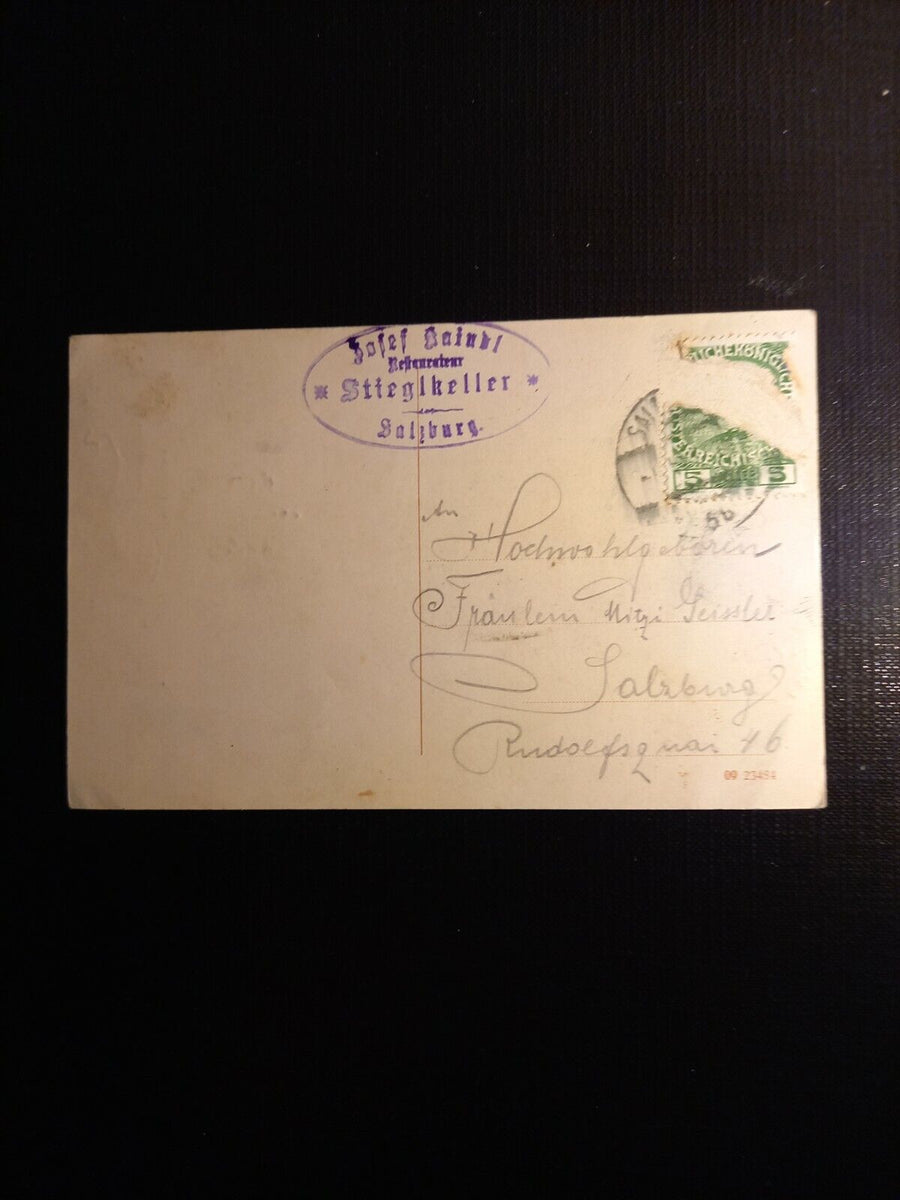 Josef Baindl
Restaurateur
* Stieglkeller *
Salzburg.
LICHEKÖNIGLICH
SAL
ERREICHISCH
5 5
5b
An
Hochwohlgeboren
Fräulein Mitzi Geissler
Salzburg
Rudolfsquai 46
09 23484